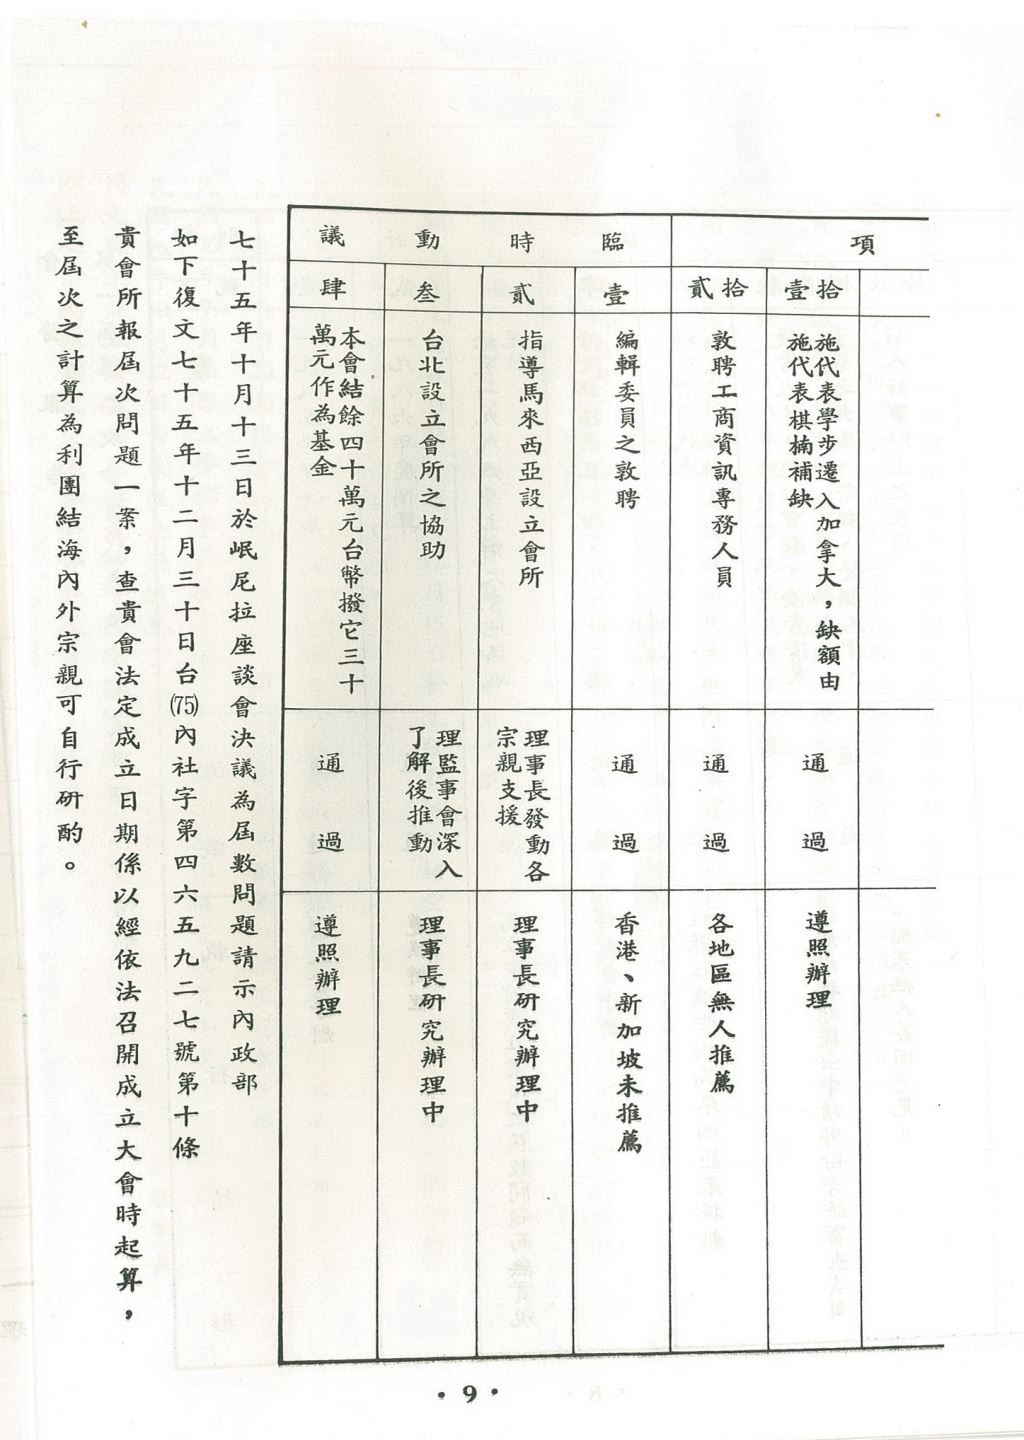 項
拾壹
施代表學步遷入加拿大，缺額由
施代表棋楠補缺
通過
遵照辦理
拾貳
敦聘工商資訊專務人員
通過
各地區無人推薦
臨時動議
壹
編輯委員之敦聘
通過
香港、新加坡未推薦
貳
指導馬來西亞設立會所
理事長發動各
宗親支援
理事長研究辦理中
叁
台北設立會所之協助
理監事會深入
了解後推動
理事長研究辦理中
肆
本會結餘四十萬元台幣撥它三十
萬元作為基金
通過
遵照辦理
七十五年十月十三日於岷尼拉座談會決議為屆數問題請示內政部
如下復文七十五年十二月三十日台(75)內社字第四六五九二七號第十條
貴會所報屆次問題一案，查貴會法定成立日期係以經依法召開成立大會時起算，
至屆次之計算為利團結海內外宗親可自行研酌。
•9•